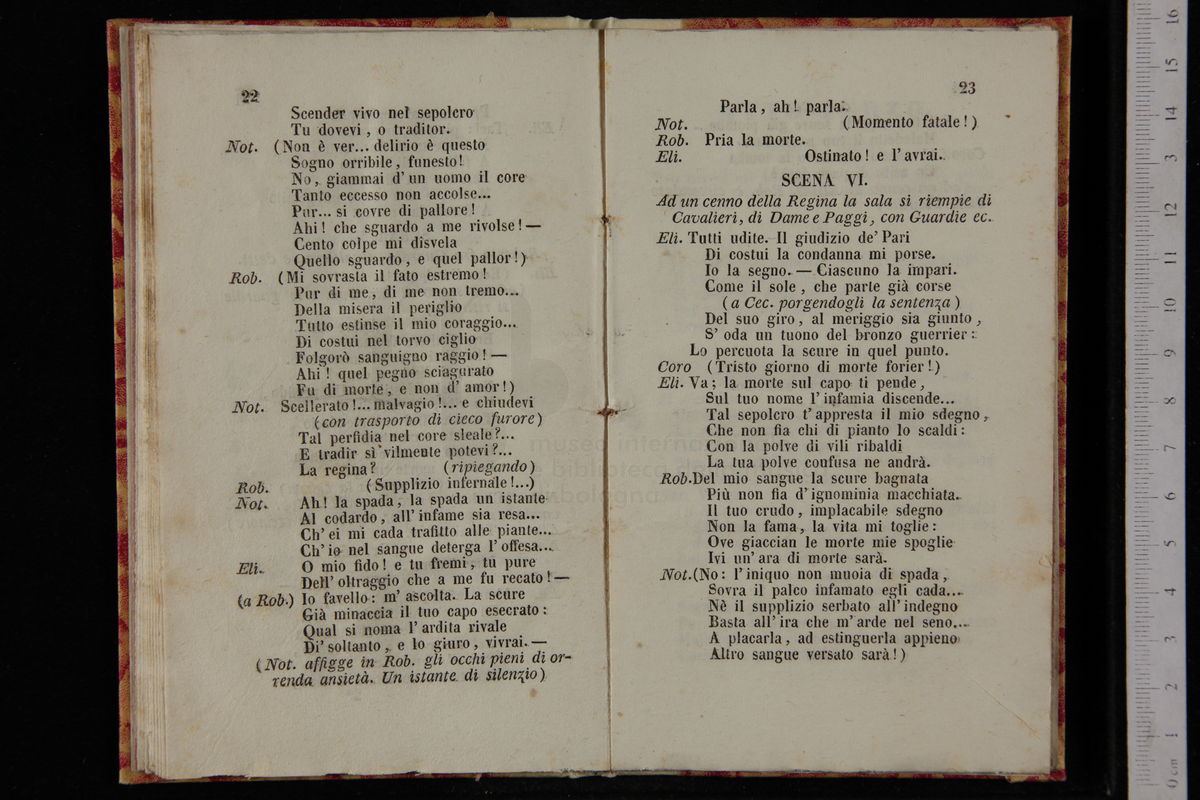 22
Scender vivo nel sepolcro
Tu dovevi, o traditor.
Not. (Non è ver... delirio è questo
Sogno orribile, funesto!
No, giammai d'un uomo il core
Tanto eccesso non accolse...
Pur... si covre di pallore!
Ahi! che sguardo a me rivolse! —
Cento colpe mi disvela
Quello sguardo, e quel pallor!)
Rob. (Mi sovrasta il fato estremo!
Pur di me, di me non tremo...
Della misera il periglio
Tutto estinse il mio coraggio...
Di costui nel torvo ciglio
Folgorò sanguigno raggio! —
Ahi! quel pegno sciagurato
Fu di morte, e non d'amor!)
Not. Scellerato!... malvagio!... e chiudevi
(con trasporto di cieco furore)
Tal perfidia nel core sleale?...
E tradir sì vilmente potevi?...
La regina? (ripiegando)
Rob. (Supplizio infernale!...)
Not. Ah! la spada, la spada un istante
Al codardo, all'infame sia resa...
Ch'ei mi cada trafitto alle piante...
Ch'io nel sangue deterga l'offesa...
Eli. O mio fido! e tu fremi, tu pure
Dell'oltraggio che a me fu recato! —
(a Rob.) Io favello: m'ascolta. La scure
Già minaccia il tuo capo esecrato:
Qual si noma l'ardita rivale
Di' soltanto, e lo giuro, vivrai. —
(Not. affigge in Rob. gli occhi pieni di or-
renda ansietà. Un istante di silenzio)
23
Parla, ah! parla.
Not. (Momento fatale!)
Rob. Pria la morte.
Eli. Ostinato! e l'avrai.
SCENA VI.
Ad un cenno della Regina la sala si riempie di
Cavalieri, di Dame e Paggi, con Guardie ec.
Eli. Tutti udite. Il giudizio de' Pari
Di costui la condanna mi porse.
Io la segno. — Ciascuno la impari.
Come il sole, che parte già corse
(a Cec. porgendogli la sentenza)
Del suo giro, al meriggio sia giunto,
S'oda un tuono del bronzo guerrier:
Lo percuota la scure in quel punto.
Coro (Tristo giorno di morte forier!)
Eli. Va; la morte sul capo ti pende,
Sul tuo nome l'infamia discende...
Tal sepolcro t'appresta il mio sdegno,
Che non fia chi di pianto lo scaldi:
Con la polve di vili ribaldi
La tua polve confusa ne andrà.
Rob. Del mio sangue la scure bagnata
Più non fia d'ignominia macchiata.
Il tuo crudo, implacabile sdegno
Non la fama, la vita mi toglie:
Ove giaccian le morte mie spoglie
Ivi un'ara di morte sarà.
Not. (No: l'iniquo non muoia di spada,
Sovra il palco infamato egli cada...
Nè il supplizio serbato all'indegno
Basta all'ira che m'arde nel seno...
A placarla, ad estinguerla appieno
Altro sangue versato sarà!)